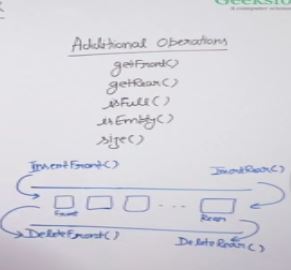 Additional Operations
getFront()
getRear()
isFull()
isEmpty()
size()
InsertFront()
InsertRear()
Front
...
Rear
DeleteFront()
DeleteRear()